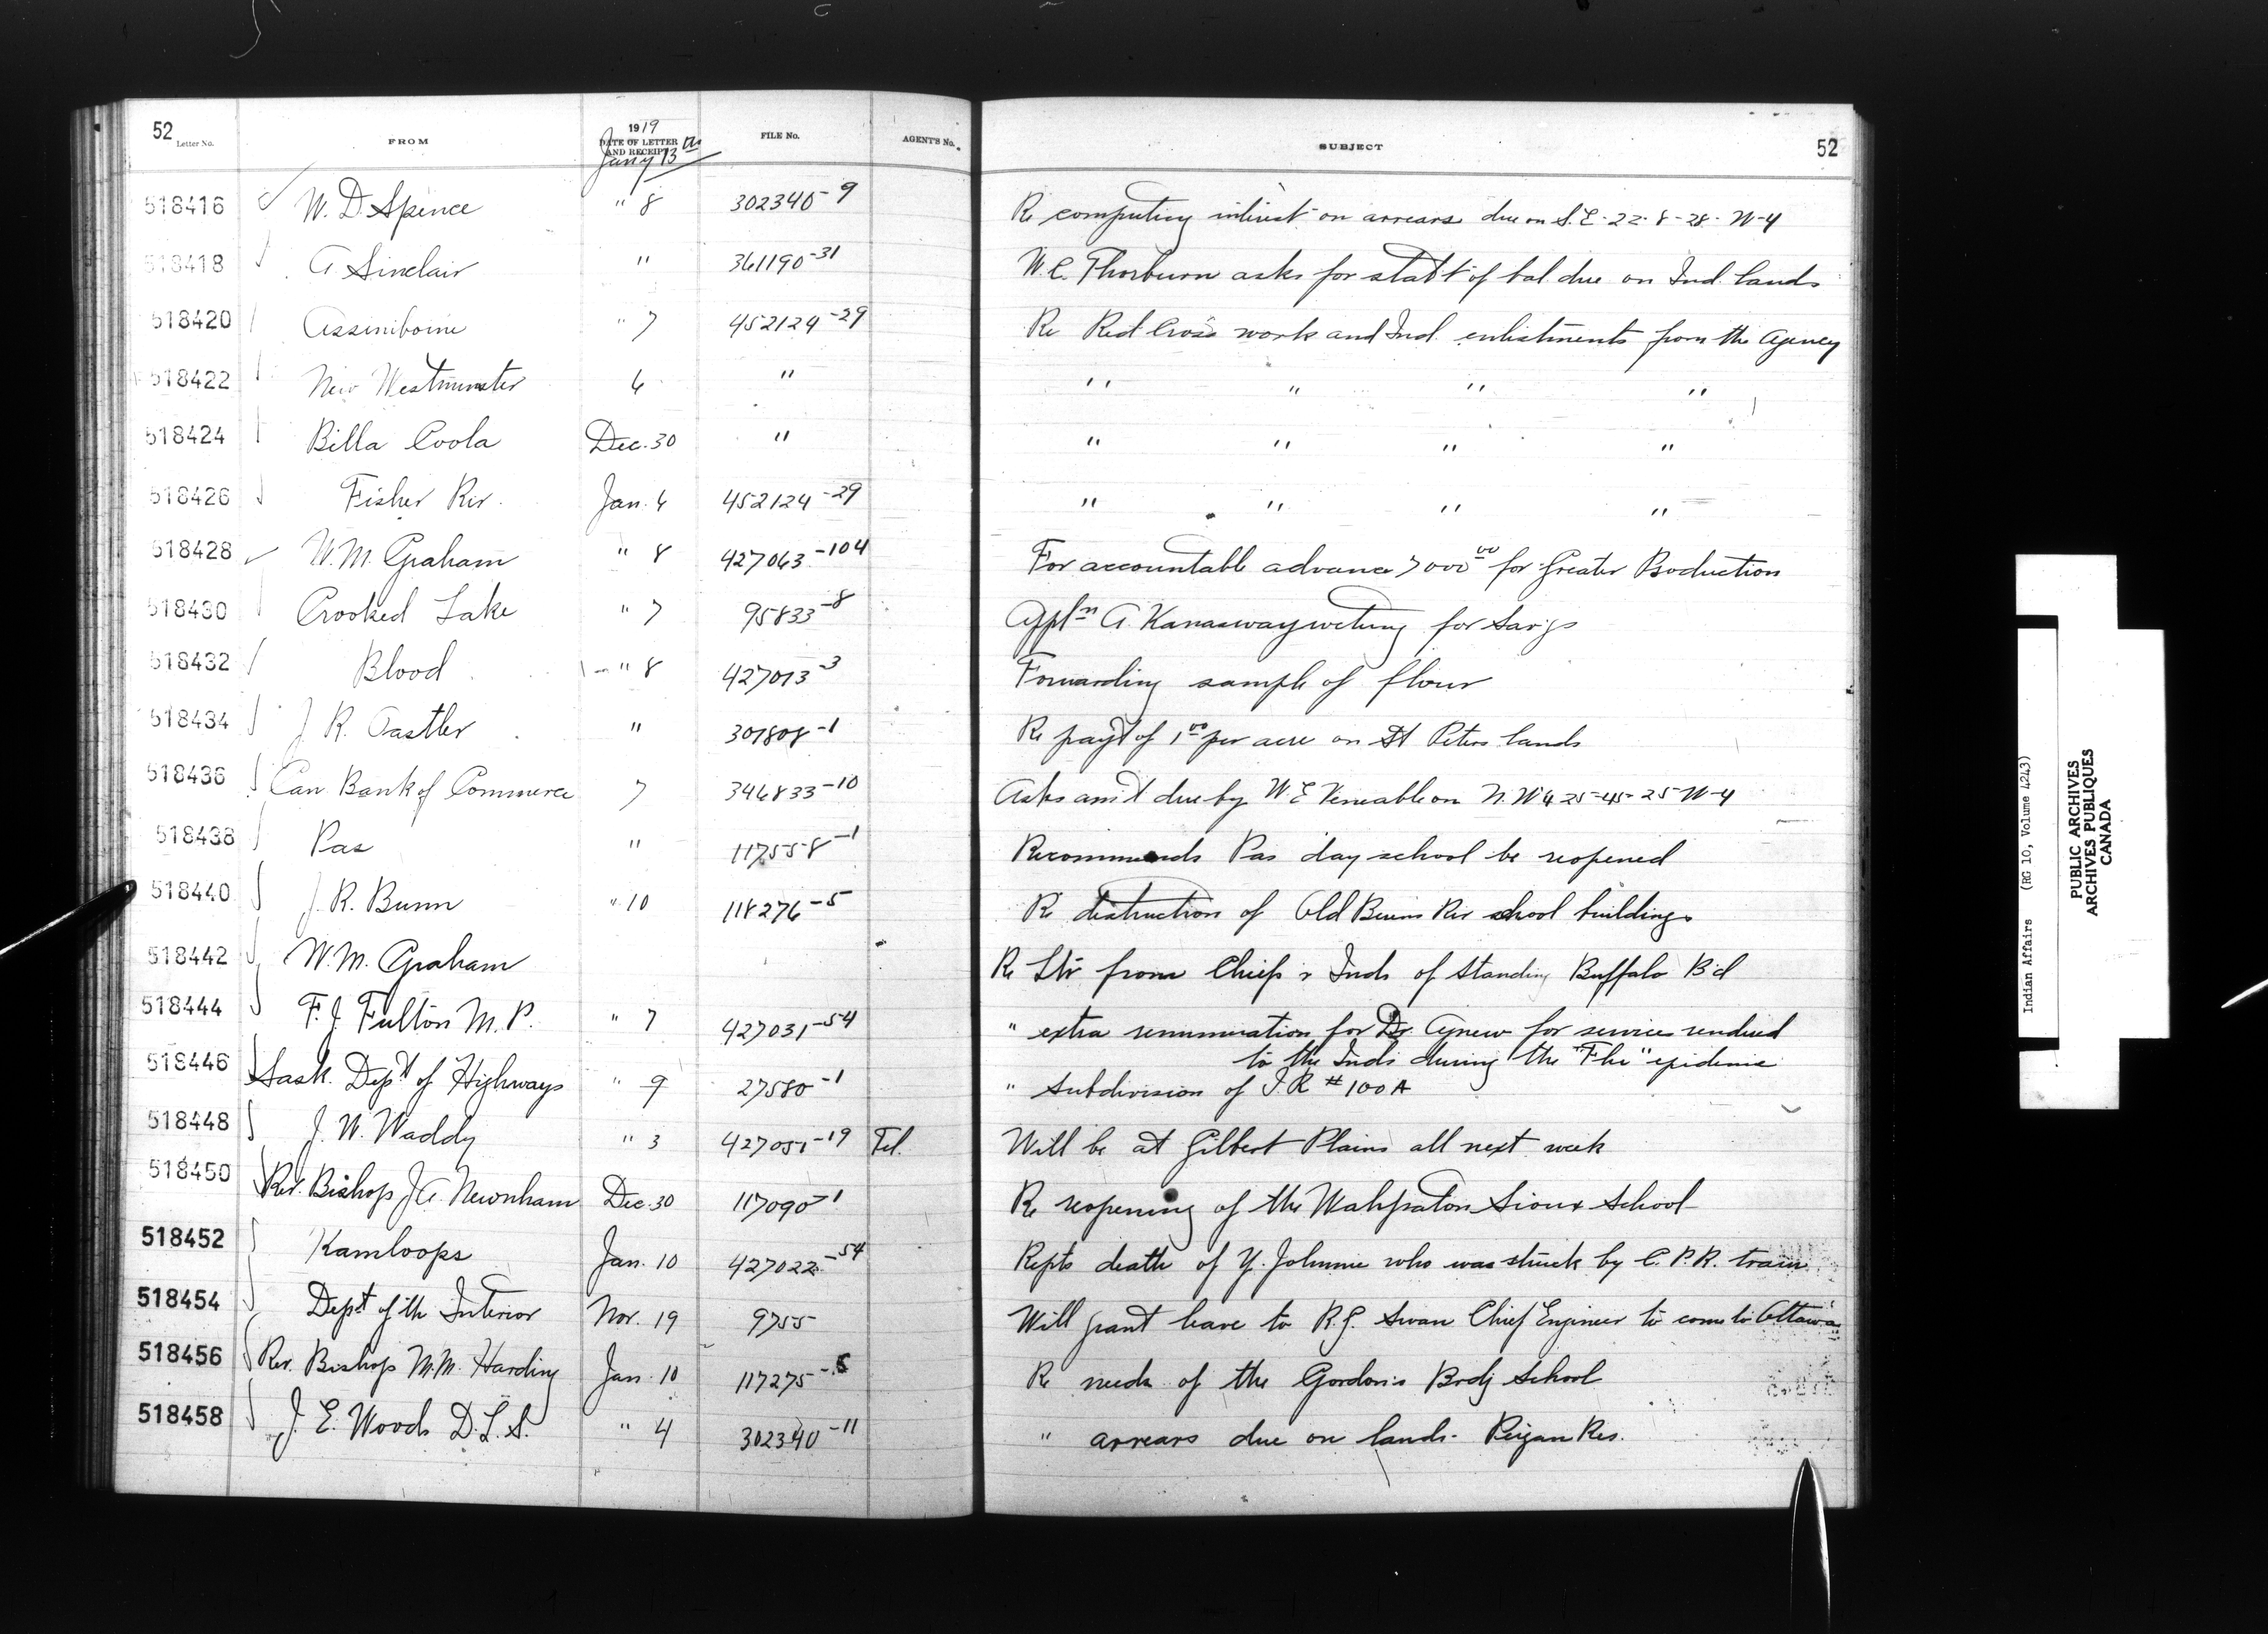 52 Letter No. FROM 1919 DATE OF LETTER AND RECEIPT FILE No. AGENT'S No. SUBJECT 52
Jany 13th
518416 W. D. Spence " 8 302340-9 Re computing interest on arrears due on S.E-22-8-28-W-4
518418 A Sinclair " 361190-31 W. C. Thorburn asks for stat't of bal. due on Ind. lands
518420 Assiniboine " 7 452124-29 Re Red Cross work and Ind. enlistments from the Agency
518422 New Westminster 6 " " " " "
518424 Billa Coola Dec. 30 " " " " "
518426 Fisher Riv. Jan. 6 452124-29 " " " "
518428 W. M. Graham " 8 427063-104 For accountable advance 7000 00 for Greater Production
518430 Crooked Lake " 7 95833-8 Appln A. for Sav'gs
518432 Blood " 8 427013-3 Forwarding sample of flour
518434 J. R. Oastler " 301808-1 Re pay't of 1 00 per acre on St Peters lands
518436 Can Bank of Commerce 7 346833-10 Asks am't due by W. E Venable on N.W 4 25-45-25-W-4
518438 Pas " 117558-1 Recommends Pas day school be reopened
518440 J. R. Bunn " 10 118276-5 Re distruction of Old Buns Riv school buildings
518442 W. M. Graham Re Ltr from Chiefs & Inds of Standing Buffalo B'd
518444 F. J. Fulton M. P. " 7 427031-54 " extra renumeration for Dr. Agnew for services rendered
to the Inds during the "Flu" epidemic
518446 Sask. Dep't of Highways " 9 27580-1 " Subdivision of I. R #100A
518448 J. W. Waddy " 3 427051-19 Tel. Will be at Gilbert Plains all next week
518450 Rev. Bishop J. A. Newnham Dec. 30 117090-1 Re reopening of the Wahpaton Sioux School
518452 Kamloops Jan. 10 427022-54 Repts death of Y. Johnnie who was struck by C. P. R. train
518454 Dept of th Interior Nov. 19 9755 Will grant leave to R. G. Swan Chief Engineer to come to Ottawa
518456 Rev. Bishop M. M. Harding Jan. 10 117275-5 Re needs of the Gordon's Brdg School
518458 J. E. Woods D. L. S. " 4 302340-11 " arrears due on lands- Peigan Res.
Indian Affairs (RG 10, Volume 4243)
PUBLIC ARCHIVES
ARCHIVES PUBLIQUES
CANADA